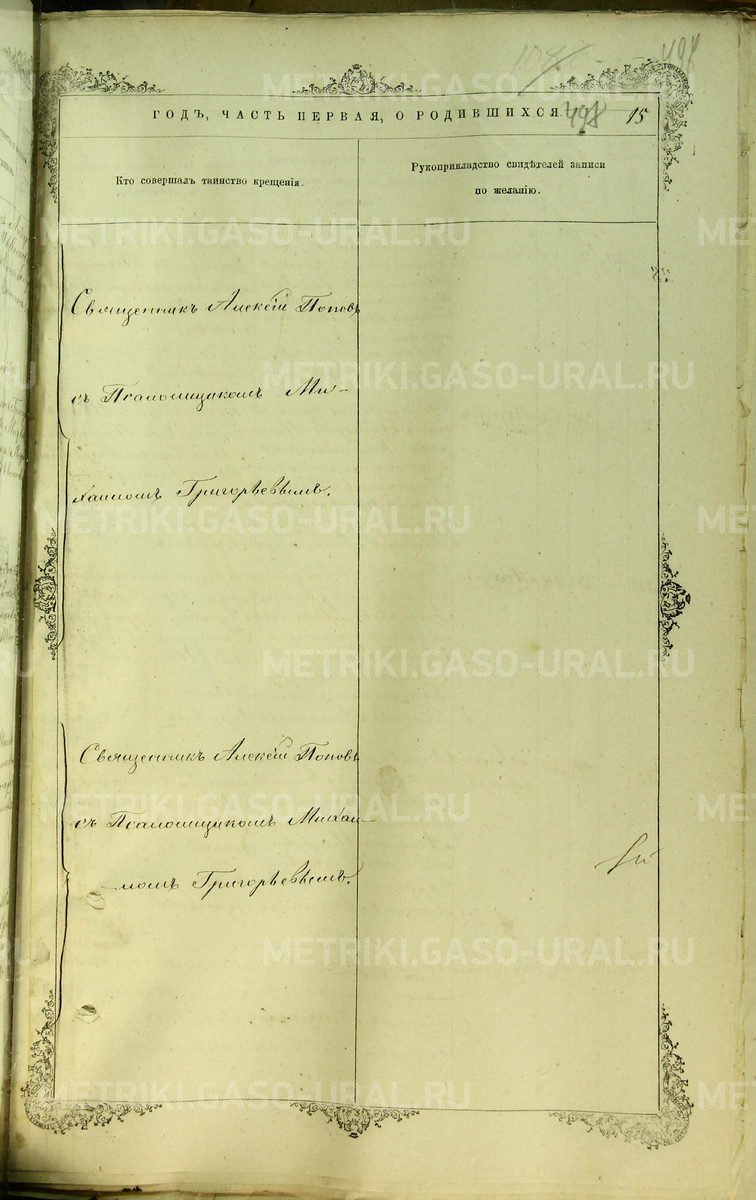 498
ГОДЪ, ЧАСТЬ ПЕРВАЯ, О РОДИВШИХСЯ. 498 15
Кто совершалъ таинство крещенія.
Рукоприкладство свидѣтелей записи
по желанію.
Священникъ Алексій Поповъ
съ Псаломщикомъ Ми-
хаиломъ Григорьевымъ.
Священникъ Алексій Поповъ
съ Псаломщикомъ Михаи-
ломъ Григорьевымъ.
METRIKI.GASO-URAL.RU